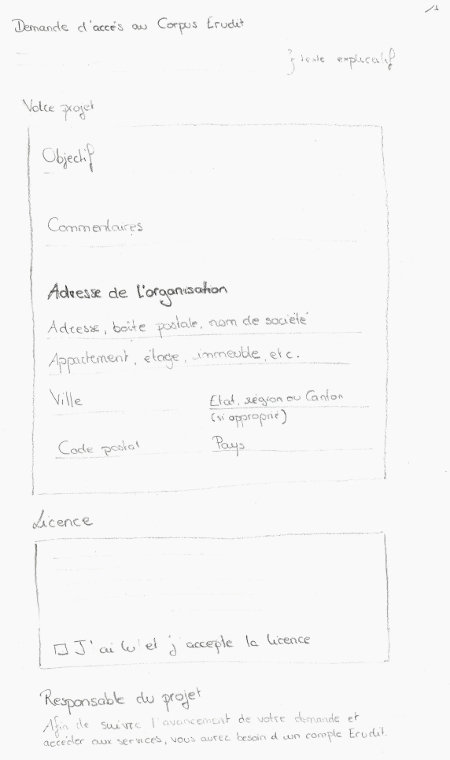 Demande d'accès au Corpus Erudit
} texte explicatif
Votre projet
Objectif
Commentaires
Adresse de l'organisation
Adresse, boîte postale, nom de société
Appartement, étage, immeuble, etc.
Ville
Etat, région ou Canton
(si approprié)
Code postal
Pays
Licence
J'ai lu et j'accepte la licence
Responsable du projet
Afin de suivre l'avancement de votre demande et
accéder aux services, vous aurez besoin d'un compte Erudit.